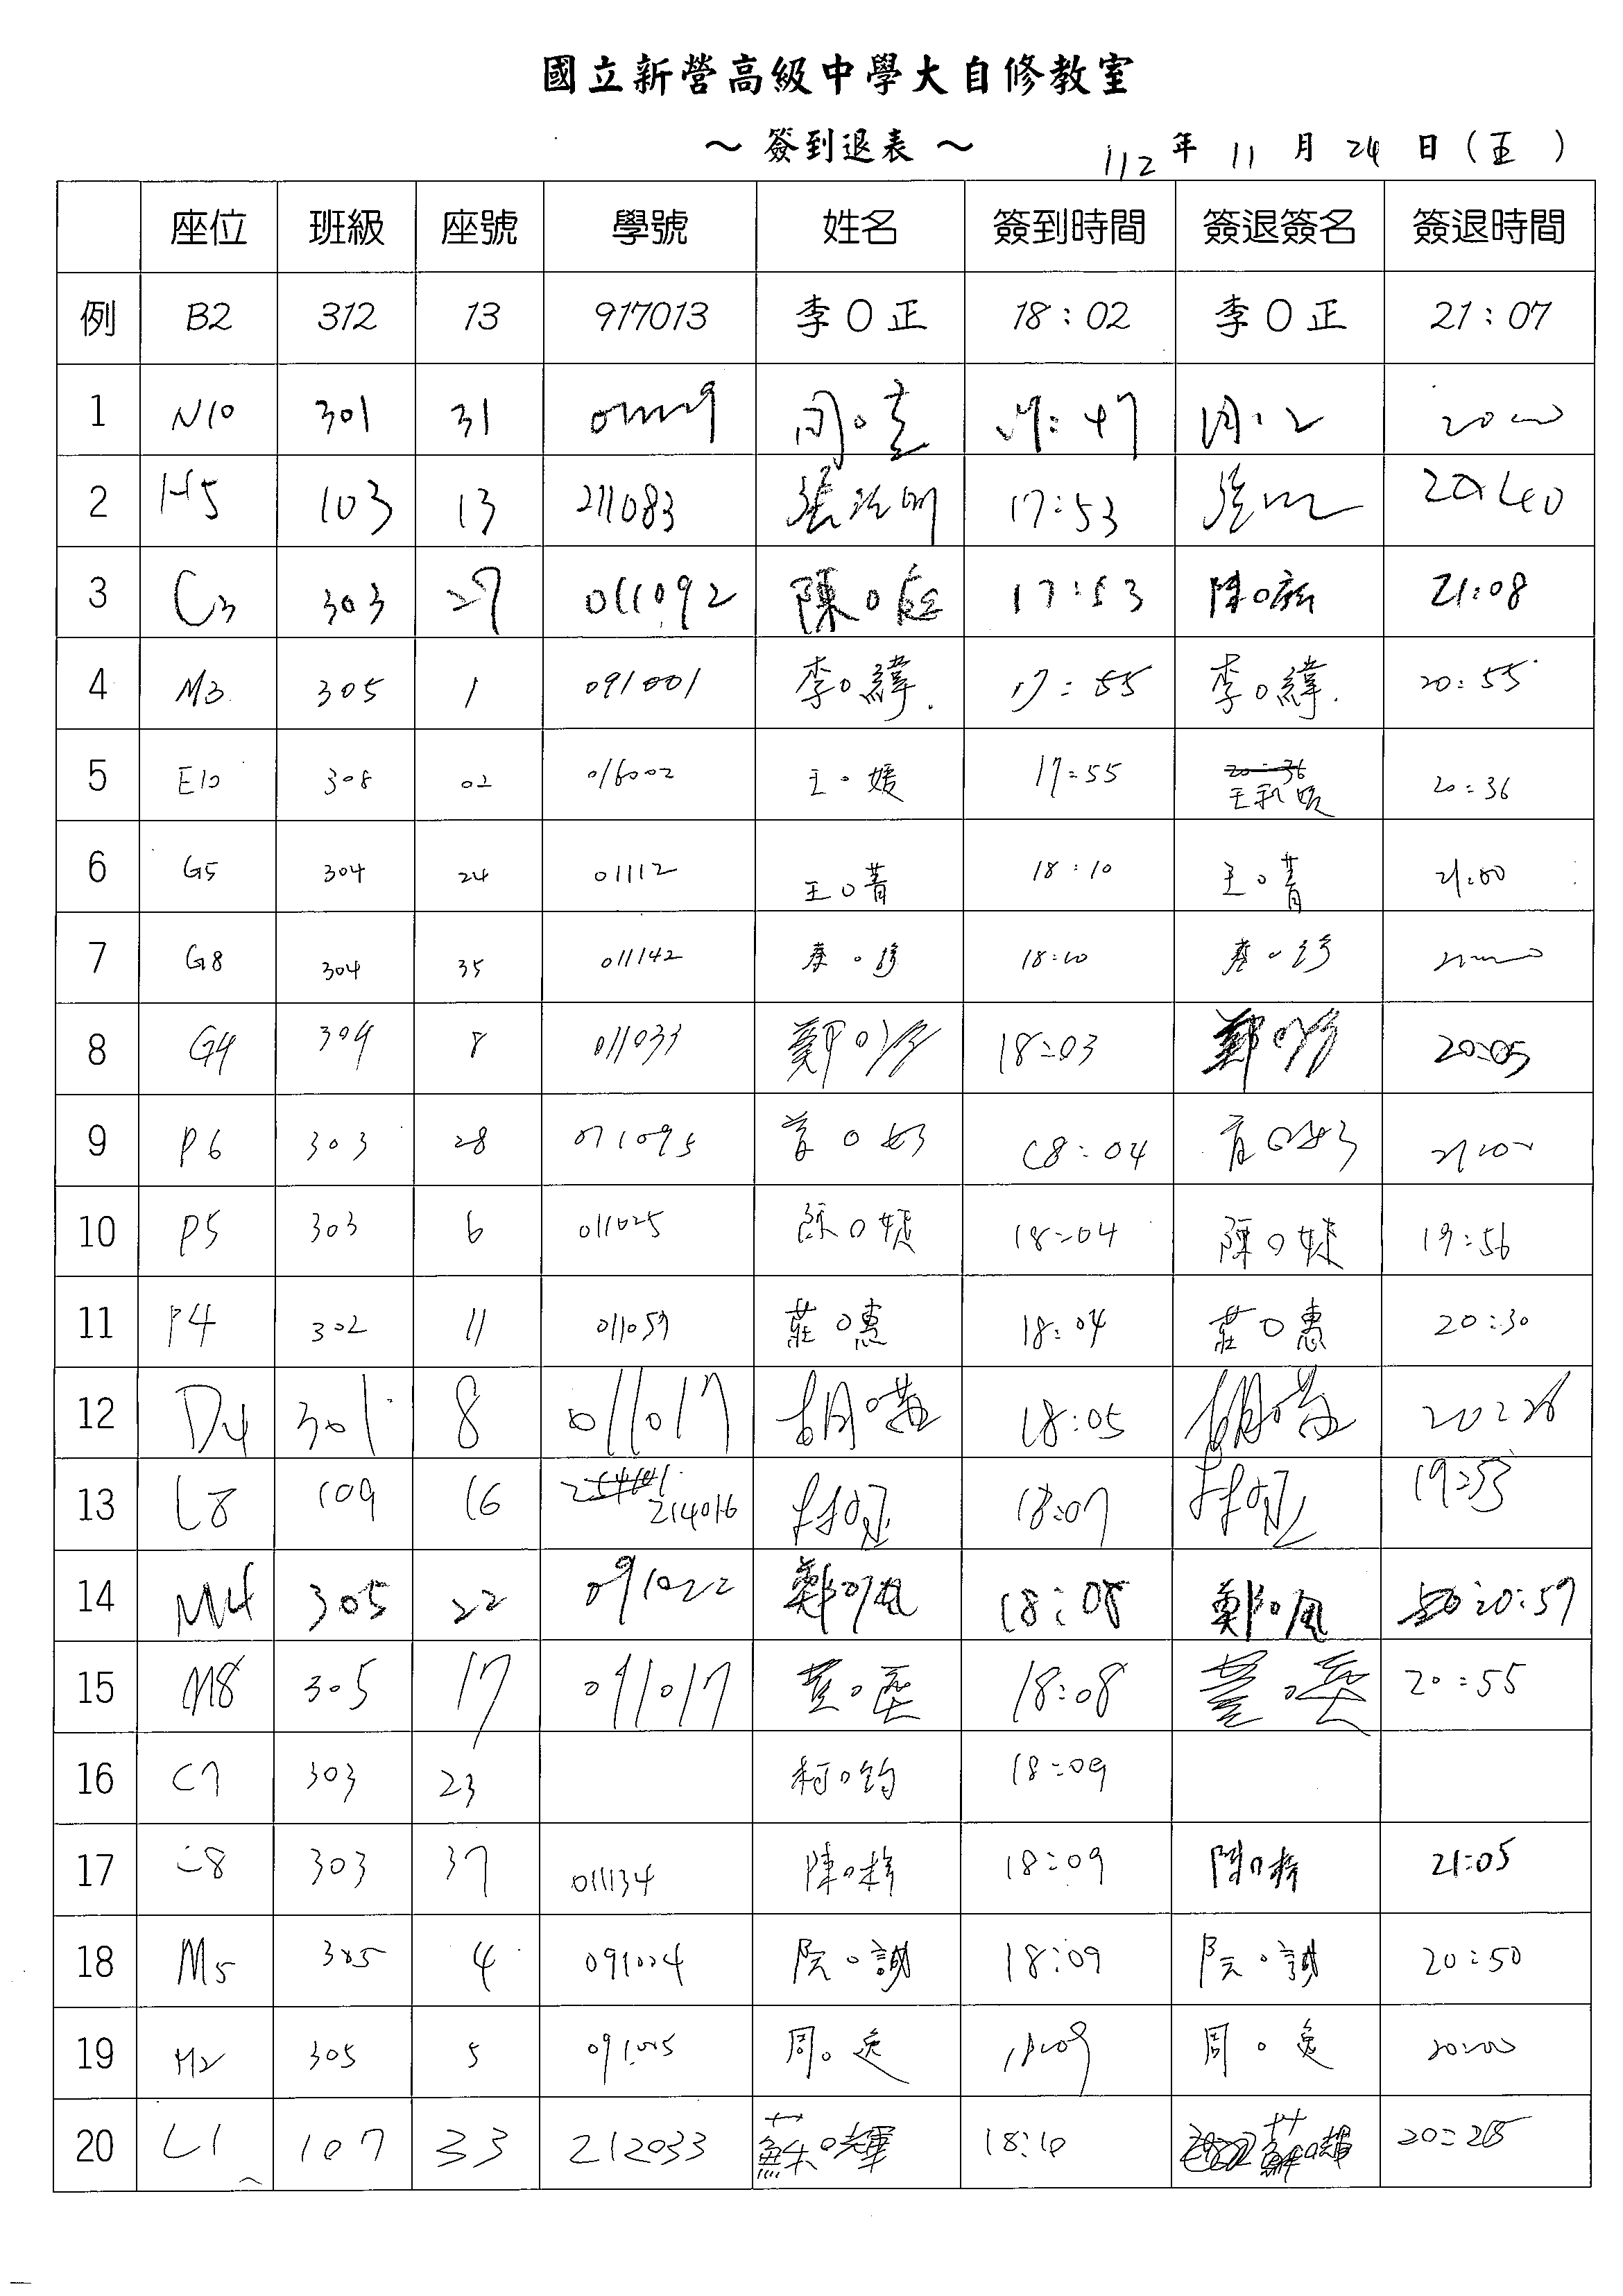 國立新營高級中學大自修教室
～ 簽到退表 ～ 112 年 11 月 24 日 ( 五 )
座位 班級 座號 學號 姓名 簽到時間 簽退簽名 簽退時間
例 B2 312 13 917013 李O正 18:02 李O正 21:07
1 N10 301 31 17:47
2 H5 103 13 211083 17:53 20:40
3 C3 303 27 011092 陳O庭 17:53 21:08
4 M3 305 1 091001 李O緯 17:55 李O緯 20:55
5 E10 308 02 016002 王O媛 17:55 20:36
6 G5 304 24 01112 王O菁 18:10 王O菁 21:00
7 G8 304 35 011142 18:10
8 G4 304 8 011033 18:03 20:05
9 P6 303 28 011095 18:04
10 P5 303 6 011025 18:04 19:56
11 P4 302 11 011059 莊O惠 18:04 莊O惠 20:30
12 D4 301 8 011017 18:05 20:26
13 L8 109 16 214016 18:07 19:53
14 M4 305 22 091022 18:08 20:59
15 M8 305 17 091017 18:08 20:55
16 C7 303 23 柯O鈞 18:09
17 303 37 011134 18:09 21:05
18 M5 305 4 091004 阮O誠 18:09 阮O誠 20:50
19 M2 305 5 091005 周O逸 18:09 周O逸 20:00
20 L1 107 33 212033 蘇O輝 18:10 蘇O輝